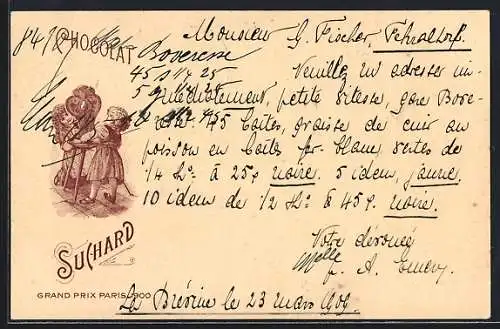 CHOCOLAT
SUCHARD
GRAND PRIX PARIS 1900
Monsieur G. Fischer, Fehraltorf.
Boveresse
45 à 1/4 25
Veuillez m'adresser im-
médiatement, petite vitesse, gare Bove-
resse 45 boîtes, graisse de cuir au
poisson en boîtes fer blanc, vertes de
1/4 Ko à 25 noire. 5 idem, jaune.
10 idem de 1/2 Ko à 45 noire.
Votre dévouée
Melle
p. A. Emery
La Brévine le 23 mars 1909.